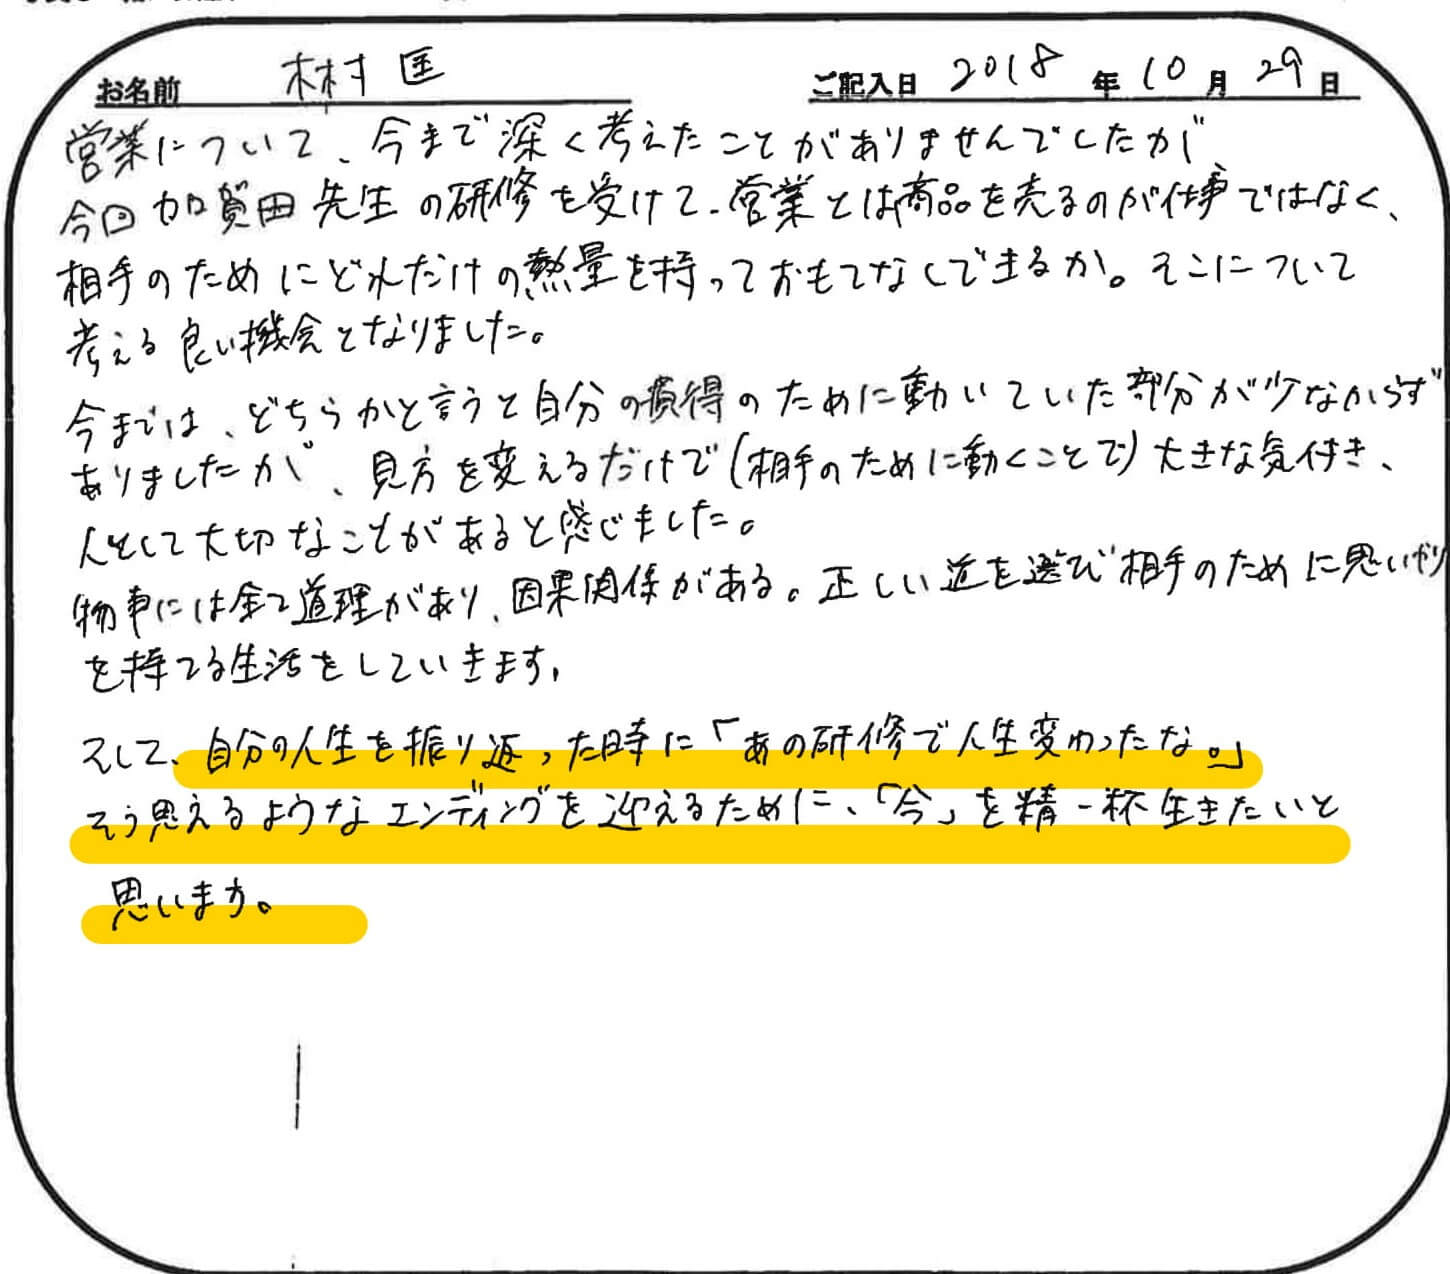 お名前 木村 匡 ご記入日 2018 年 10 月 29 日
営業について、今まで深く考えたことがありませんでしたが
今回 加賀田 先生の研修を受けて、営業とは商品を売るのが仕事ではなく、
相手のためにどれだけの熱量を持っておもてなしできるか。そこについて
考える良い機会となりました。
今までは、どちらかと言うと自分の損得のために動いていた部分が少なからず
ありましたが、見方を変えるだけで(相手のために動くことで)大きな気付き、
人として大切なことがあると感じました。
物事には全て道理があり、因果関係がある。正しい道を選び相手のために思いやり
を持てる生活をしていきます。
そして、自分の人生を振り返った時に「あの研修で人生変わったな。」
そう思えるようなエンディングを迎えるために、「今」を精一杯生きたいと
思います。